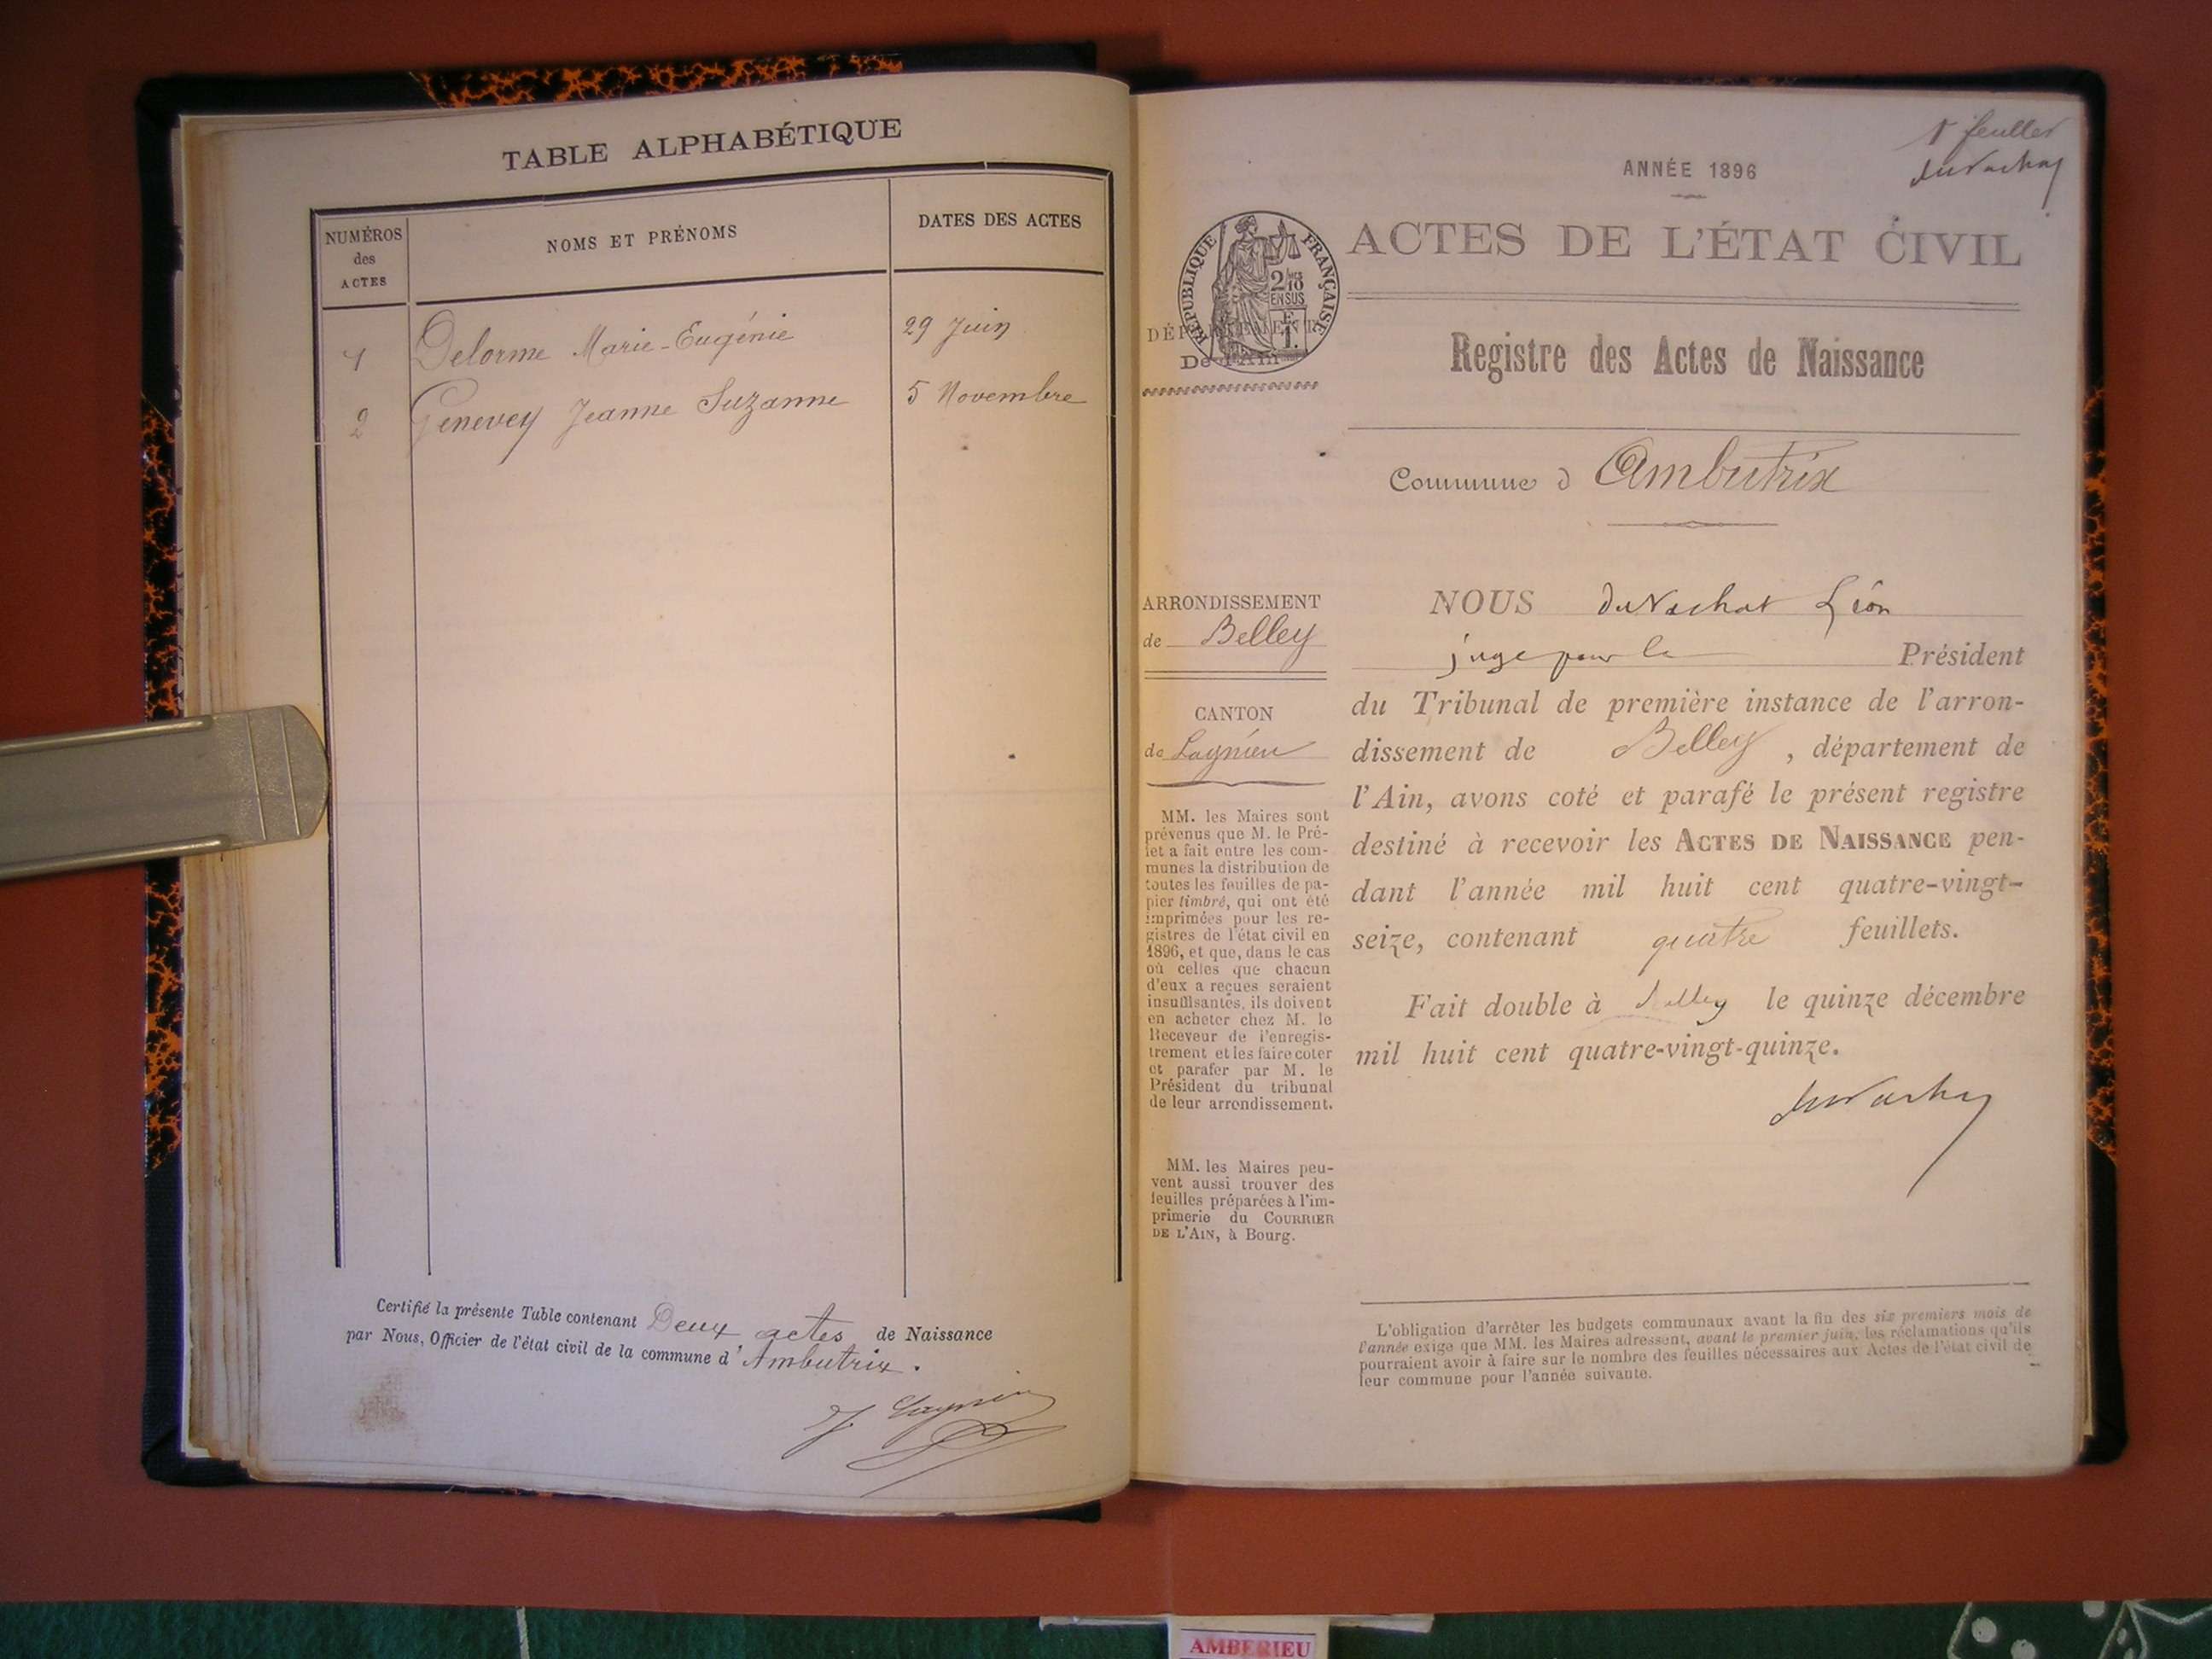 TABLE ALPHABÉTIQUE
NUMÉROS
des
ACTES
NOMS ET PRÉNOMS
DATES DES ACTES
1 Delorme Marie-Eugénie 29 Juin
2 Genevey Jeanne Suzanne 5 Novembre
Certifié la présente Table contenant Deux actes de Naissance
par Nous, Officier de l'état civil de la commune d'Ambutrix.
1r feuillet
ANNÉE 1896
ACTES DE L'ÉTAT CIVIL
RÉPUBLIQUE FRANÇAISE
2/10
EN SUS
DÉPARTEMENT
De l'Ain
Registre des Actes de Naissance
Commune d Ambutrix
ARRONDISSEMENT
de Belley
CANTON
de Lagnieu
MM. les Maires sont
prévenus que M. le Pré-
fet a fait entre les com-
munes la distribution de
toutes les feuilles de pa-
pier timbré, qui ont été
imprimées pour les re-
gistres de l'état civil en
1896, et que, dans le cas
où celles que chacun
d'eux a reçues seraient
insuffisantes, ils doivent
en acheter chez M. le
Receveur de l'enregis-
trement et les faire coter
et parafer par M. le
Président du tribunal
de leur arrondissement.
MM. les Maires peu-
vent aussi trouver des
feuilles préparées à l'im-
primerie du COURRIER
DE L'AIN, à Bourg.
NOUS duVachat Léon
juge pour le Président
du Tribunal de première instance de l'arron-
dissement de Belley, département de
l'Ain, avons coté et parafé le présent registre
destiné à recevoir les ACTES DE NAISSANCE pen-
dant l'année mil huit cent quatre-vingt-
seize, contenant quatre feuillets.
Fait double à Belley le quinze décembre
mil huit cent quatre-vingt-quinze.
L'obligation d'arrêter les budgets communaux avant la fin des six premiers mois de
l'année exige que MM. les Maires adressent, avant le premier juin, les réclamations qu'ils
pourraient avoir à faire sur le nombre des feuilles nécessaires aux Actes de l'état civil de
leur commune pour l'année suivante.
AMBERIEU